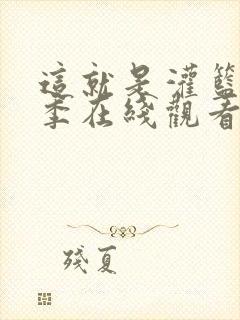 這就是灌籃
季在綫觀看
殘夏